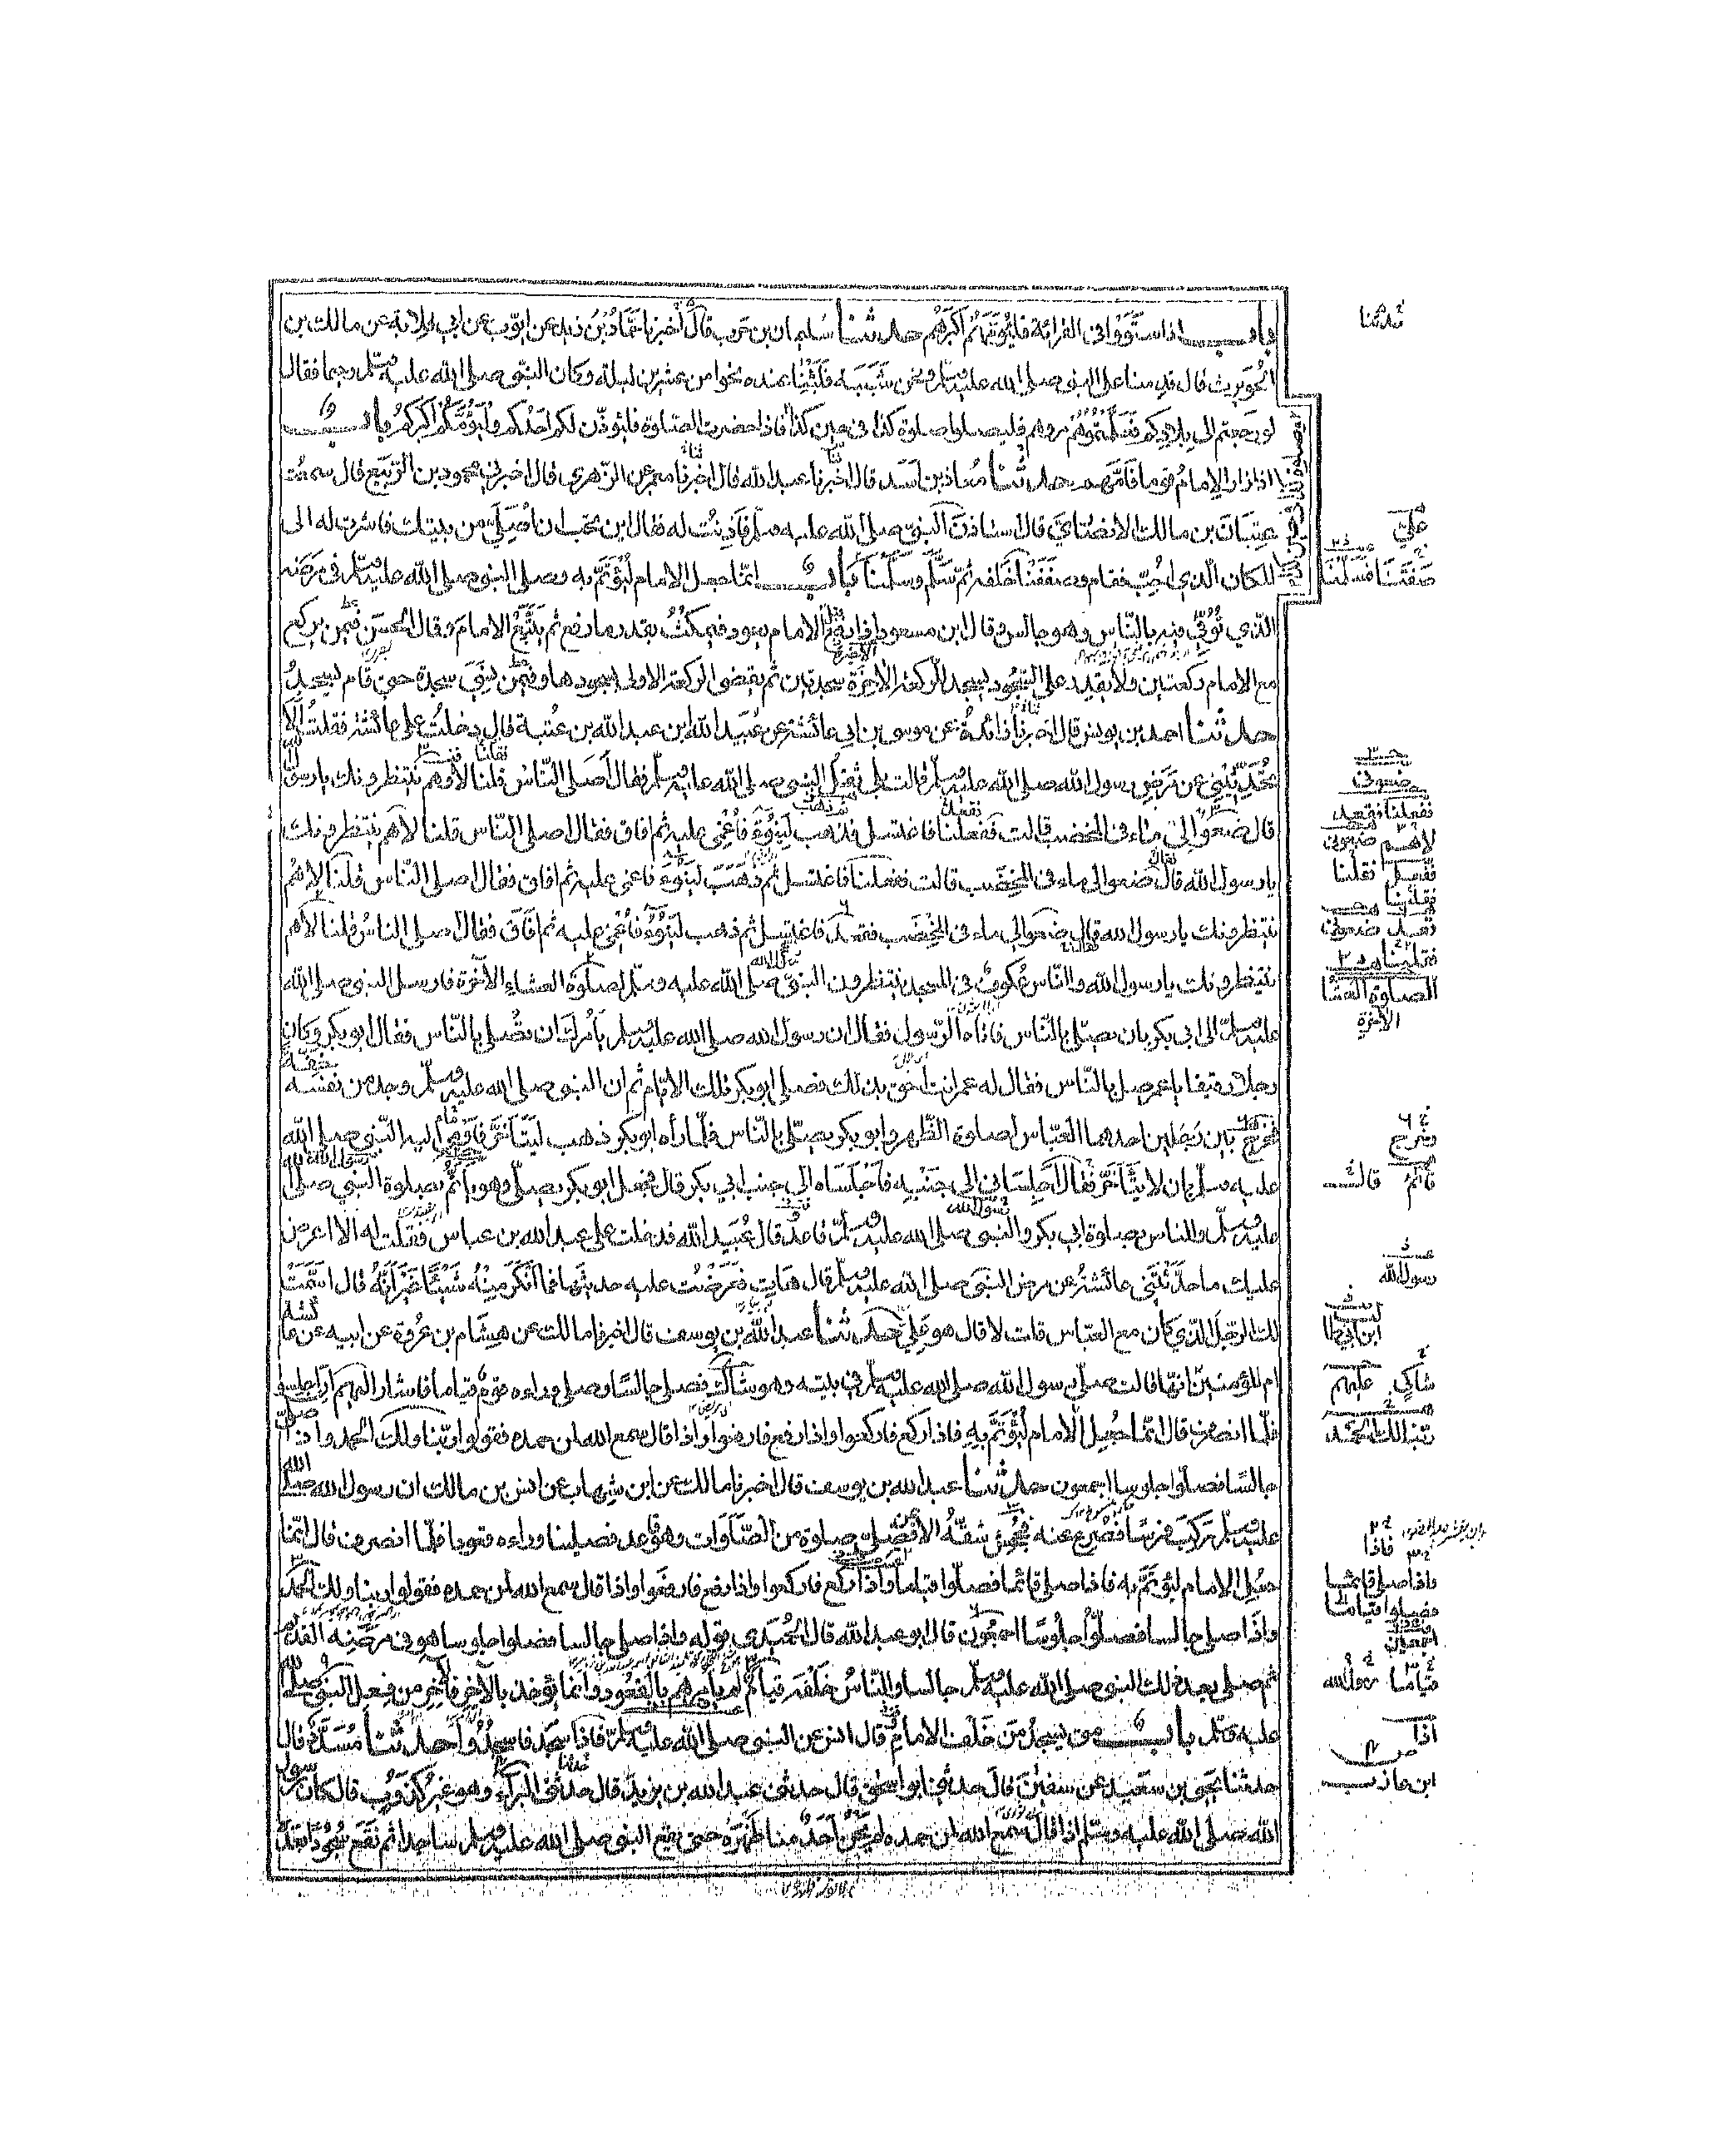 باب اذا استووا فى القراءة فليؤمهم اكبرهم حدثنا سليمان بن حرب قال اخبرنا حماد بن زيد عن ايوب عن ابى قلابة عن مالك بن
الحويرث قال قدمنا على النبى صلى الله عليه وسلم ونحن شببة فلبثنا عنده نحوا من عشرين ليلة وكان النبى صلى الله عليه وسلم رحيما فقال
لو رجعتم الى بلادكم فعلمتموهم مروهم فليصلوا صلوة كذا فى حين كذا فاذا حضرت الصلوة فليؤذن لكم احدكم وليؤمكم اكبركم باب
اذا زار الامام قوما فامهم حدثنا معاذ بن اسد قال اخبرنا عبد الله قال اخبرنا معمر عن الزهرى قال اخبرنى محمود بن الربيع قال سمعت
عتبان بن مالك الانصارى قال استاذن النبى صلى الله عليه وسلم فاذنت له فقال اين تحب ان اصلى من بيتك فاشرت له الى
المكان الذى احب فقام وصففنا خلفه ثم سلم وسلمنا باب انما جعل الامام ليؤتم به وصلى النبى صلى الله عليه وسلم فى مرضه
الذى توفى فيه بالناس وهو جالس وقال ابن مسعود اذا رفع قبل الامام يعود فيمكث بقدر ما رفع ثم يتبع الامام وقال الحسن فيمن يركع
مع الامام ركعتين ولا يقدر على السجود يسجد للركعة الاخرة سجدتين ثم يقضى الركعة الاولى بسجودها وفيمن نسى سجدة حتى قام يسجد
حدثنا احمد بن يونس قال اخبرنا زائدة عن موسى بن ابى عائشة عن عبيد الله ابن عبد الله بن عتبة قال دخلت على عائشة فقلت الا
تحدثينى عن مرض رسول الله صلى الله عليه وسلم قالت بلى ثقل النبى صلى الله عليه وسلم فقال اصلى الناس قلنا لا وهم ينتظرونك يا رسول الله
قال ضعوا لى ماء فى المخضب قالت ففعلنا فاغتسل فذهب لينوء فاغمى عليه ثم افاق فقال اصلى الناس قلنا لا هم ينتظرونك
يا رسول الله قال ضعوا لى ماء فى المخضب قالت ففعلنا فاغتسل ثم ذهب لينوء فاغمى عليه ثم افاق فقال اصلى الناس قلنا لا هم
ينتظرونك يا رسول الله قال ضعوا لى ماء فى المخضب فقعد فاغتسل ثم ذهب لينوء فاغمى عليه ثم افاق فقال اصلى الناس قلنا لا هم
ينتظرونك يا رسول الله والناس عكوف فى المسجد ينتظرون النبى صلى الله عليه وسلم لصلوة العشاء الاخرة فارسل النبى صلى الله
عليه وسلم الى ابى بكر بان يصلى بالناس فاتاه الرسول فقال ان رسول الله صلى الله عليه وسلم يامرك ان تصلى بالناس فقال ابو بكر وكان
رجلا رقيقا يا عمر صل بالناس فقال له عمر انت احق بذلك فصلى ابو بكر تلك الايام ثم ان النبى صلى الله عليه وسلم وجد من نفسه خفة
فخرج بين رجلين احدهما العباس لصلوة الظهر وابو بكر يصلى بالناس فلما راه ابو بكر ذهب ليتاخر فاومأ اليه النبى صلى الله
عليه وسلم بان لا يتاخر فقال اجلسانى الى جنبه فاجلساه الى جنب ابى بكر قال فجعل ابو بكر يصلى وهو ياتم بصلوة النبى صلى الله
عليه وسلم والناس بصلوة ابى بكر والنبى صلى الله عليه وسلم قاعد قال عبيد الله فدخلت على عبد الله بن عباس فقلت له الا اعرض
عليك ما حدثتنى عائشة عن مرض النبى صلى الله عليه وسلم قال هات فعرضت عليه حديثها فما انكر منه شيئا غير انه قال اسمت
لك الرجل الذى كان مع العباس قلت لا قال هو على حدثنا عبد الله بن يوسف قال اخبرنا مالك عن هشام بن عروة عن ابيه عن عائشة
ام المؤمنين انها قالت صلى رسول الله صلى الله عليه وسلم فى بيته وهو شاك فصلى جالسا وصلى وراءه قوم قياما فاشار اليهم ان اجلسوا
فلما انصرف قال انما جعل الامام ليؤتم به فاذا ركع فاركعوا واذا رفع فارفعوا واذا قال سمع الله لمن حمده فقولوا ربنا ولك الحمد واذا صلى
جالسا فصلوا جلوسا اجمعون حدثنا عبد الله بن يوسف قال اخبرنا مالك عن ابن شهاب عن انس بن مالك ان رسول الله صلى الله
عليه وسلم ركب فرسا فصرع عنه فجحش شقه الايمن فصلى صلوة من الصلوات وهو قاعد فصلينا وراءه قعودا فلما انصرف قال انما
جعل الامام ليؤتم به فاذا صلى قائما فصلوا قياما واذا ركع فاركعوا واذا رفع فارفعوا واذا قال سمع الله لمن حمده فقولوا ربنا ولك الحمد
واذا صلى جالسا فصلوا جلوسا اجمعون قال ابو عبد الله قال الحميدى قوله واذا صلى جالسا فصلوا جلوسا هو فى مرضه القديم
ثم صلى بعد ذلك النبى صلى الله عليه وسلم جالسا والناس خلفه قيام لم يامرهم بالقعود وانما يؤخذ بالاخر فالاخر من فعل النبى صلى الله
عليه وسلم باب متى يسجد من خلف الامام قال انس عن النبى صلى الله عليه وسلم فاذا سجد فاسجدوا حدثنا مسدد قال
حدثنا يحيى بن سعيد عن سفين قال حدثنى ابو اسحق قال حدثنى عبد الله بن يزيد قال حدثنى البراء وهو غير كذوب قال كان رسول
الله صلى الله عليه وسلم اذا قال سمع الله لمن حمده لم يحن احد منا ظهره حتى يقع النبى صلى الله عليه وسلم ساجدا ثم نقع سجودا بعده
حدثنا
على
ضعونى
الصلوة العشاء
الاخرة
قالت
رسول الله
شاك عليهم
ربنا لك الحمد
فاذا
واذا صلى قائما
فصلوا قياما
اجمعين
قياما رسول الله
اذا
ابن عازب